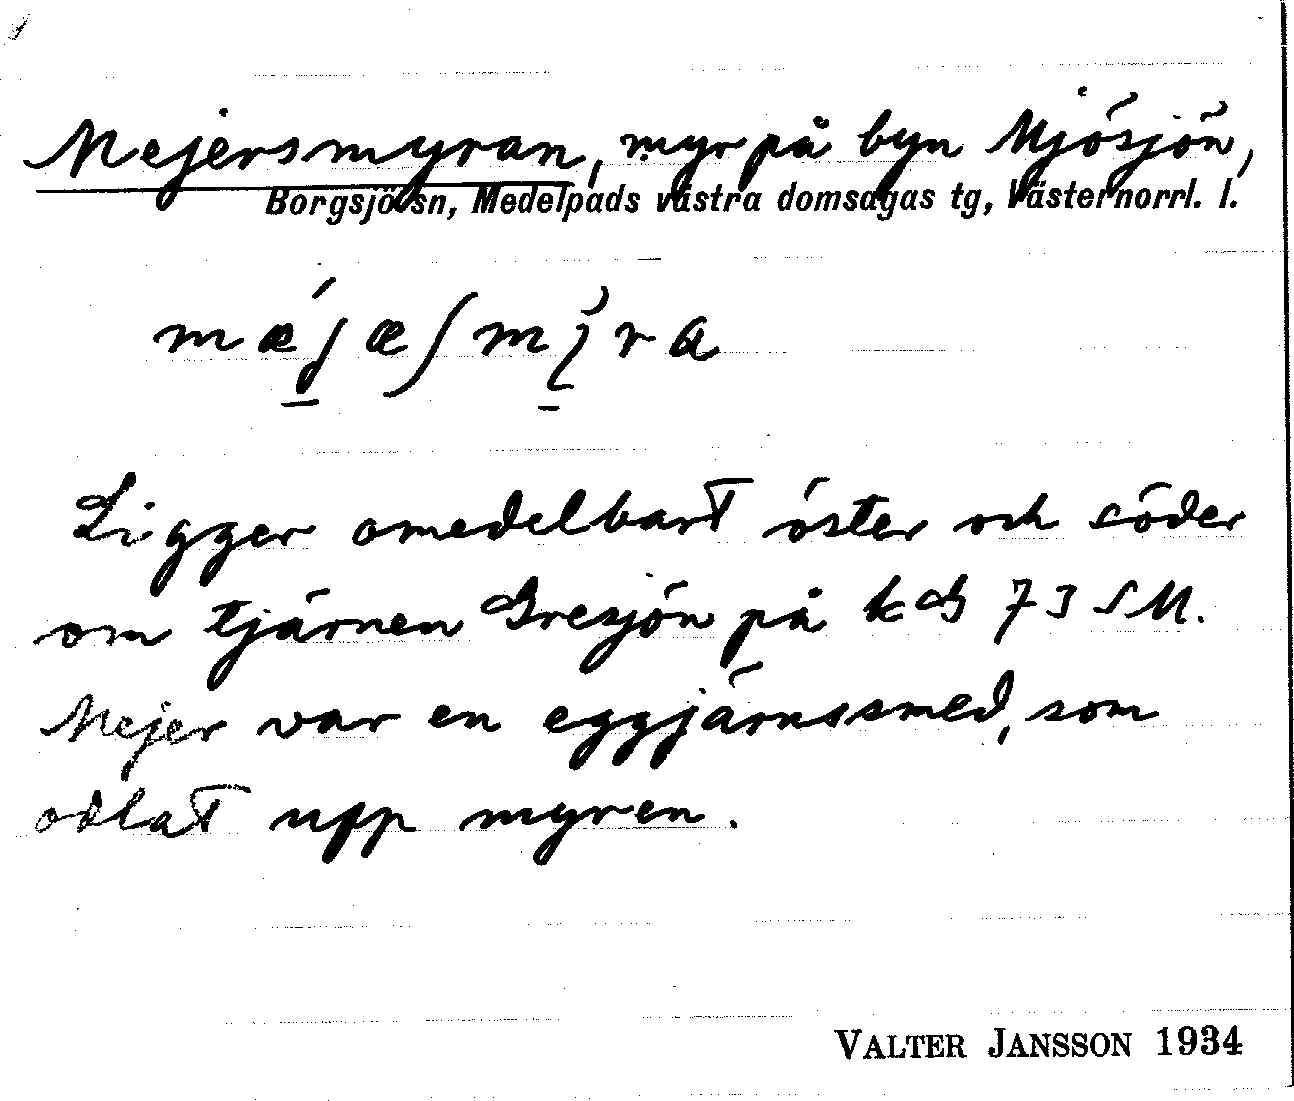 Mejersmyran, myr på byn Mjösjön,
Borgsjö sn, Medelpads västra domsagas tg, Västernorrl. l.
Ligger omedelbart öster och söder
om tjärnen Gresjön på kcb 73 SM.
Mejer var en eggjärnssmed, som
odlat upp myren.
VALTER JANSSON 1934